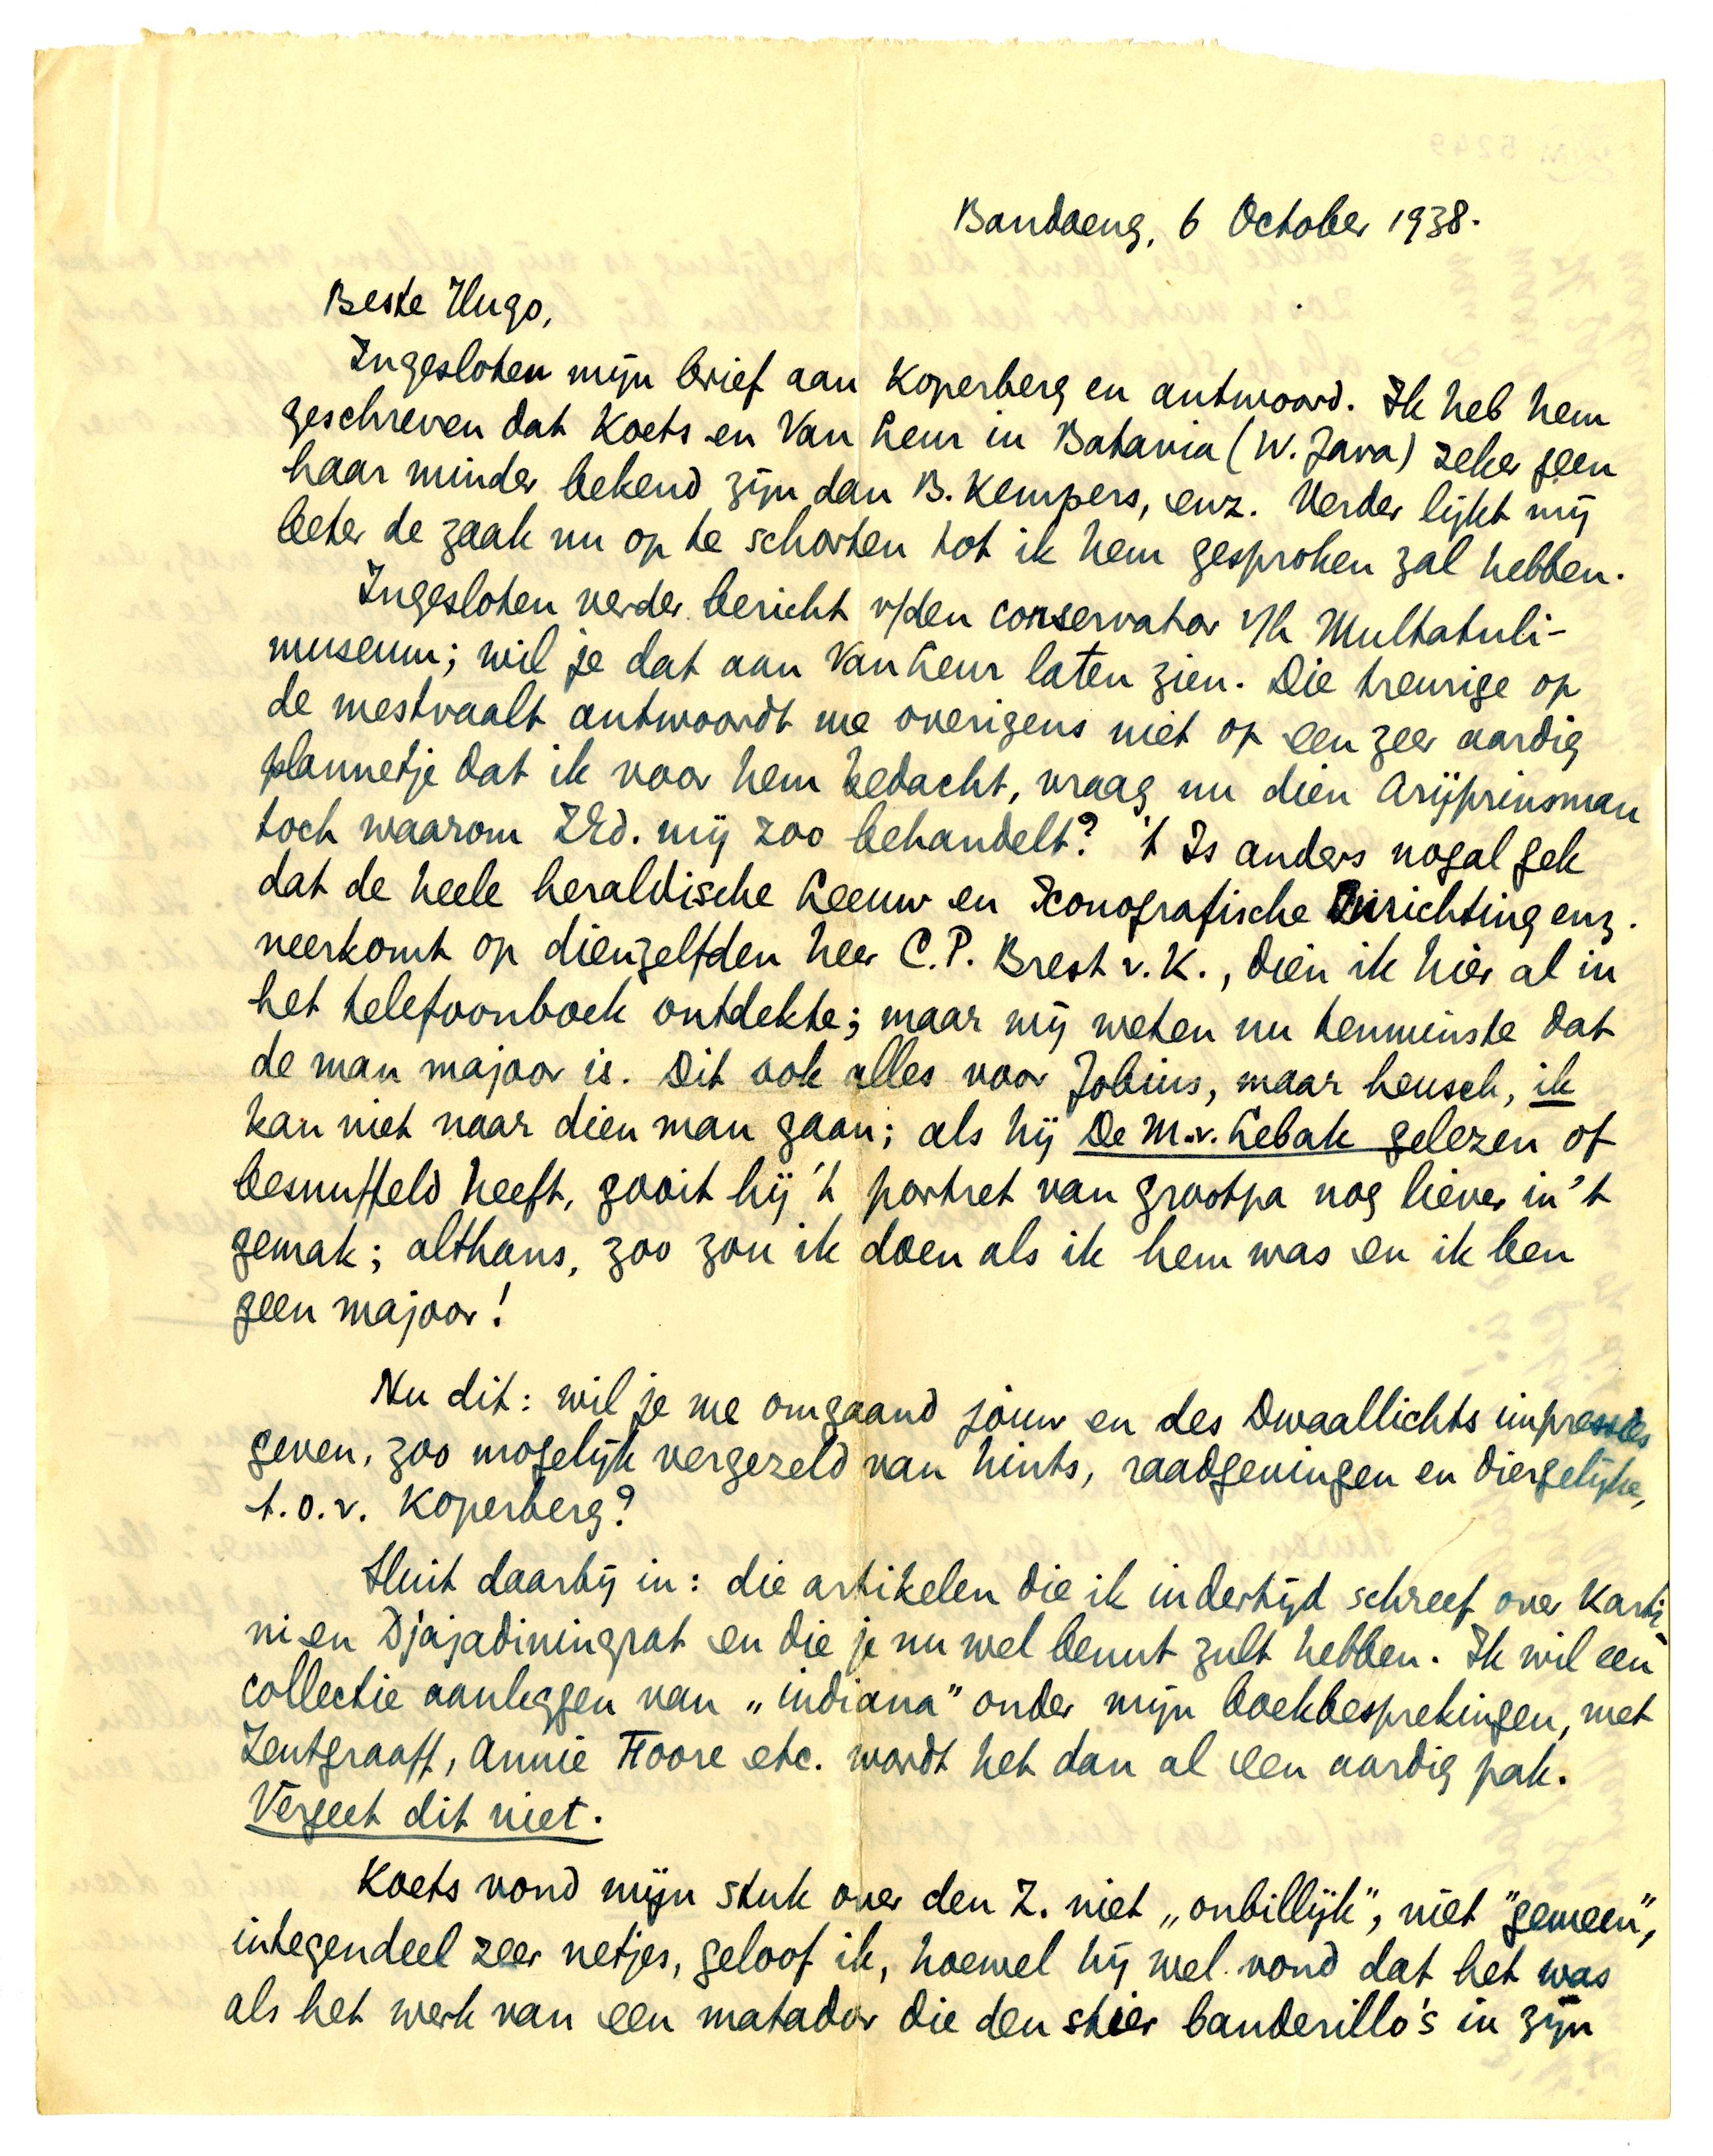 Bandoeng, 6 October 1938.
Beste Hugo,
Ingesloten mijn brief aan Koperberg en antwoord. Ik heb hem
geschreven dat Koets en Van Leur in Batavia (W. Java) zeker geen
haar minder bekend zijn dan B. Kempers, enz. Verder lijkt mij
beter de zaak nu op te schorten tot ik hem gesproken zal hebben.
Ingesloten verder bericht v/den conservator v/h Multatuli-
museum; wil je dat aan Van Leur laten zien. Die treurige op
de mestvaalt antwoordt me overigens niet op een zeer aardig
plannetje dat ik voor hem bedacht, vraag nu dien Arijprinsman
toch waarom ZEd. mij zoo behandelt? 't Is anders nogal gek
dat de heele heraldische Leeuw en Iconografische Inrichting enz.
neerkomt op dienzelfden heer C.P. Brest v. K., dien ik hier al in
het telefoonboek ontdekte; maar wij weten nu tenminste dat
de man majoor is. Dit ook alles voor Jobius, maar heusch, ik
kan niet naar dien man gaan; als hij De M.v. Lebak gelezen of
besnuffeld heeft, gooit hij 't portret van grootpa nog liever in 't
gemak; althans, zoo zou ik doen als ik hem was en ik ben
geen majoor!
Nu dit: wil je me omgaand jouw en des Dwaallichts impressies
geven, zoo mogelijk vergezeld van hints, raadgevingen en diergelijke,
t.o.v. Koperberg?
Sluit daarbij in: die artikelen die ik indertijd schreef over Karti-
ni en Djajadiningrat en die je nu wel benut zult hebben. Ik wil een
collectie aanleggen van „indiana" onder mijn boekbesprekingen, met
Zentgraaff, Annie Foore etc. wordt het dan al een aardig pak.
Vergeet dit niet.
Koets vond mijn stuk over den Z. niet „onbillijk", niet "gemeen",
integendeel zeer netjes, geloof ik, hoewel hij wel vond dat het was
als het werk van een matador die den stier banderillo's in zijn